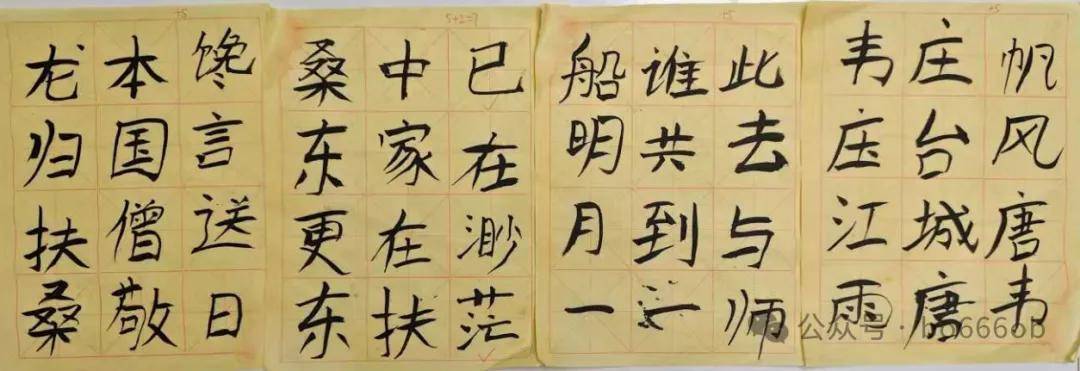 +5
馋言送日
本国僧敬
龙归扶桑
5+2=7
已在渺茫
中家在扶
桑东更东
+5
此去与师
谁共到一
船明月一
+5
帆风唐韦
庄台城唐
韦庄江雨
公众号